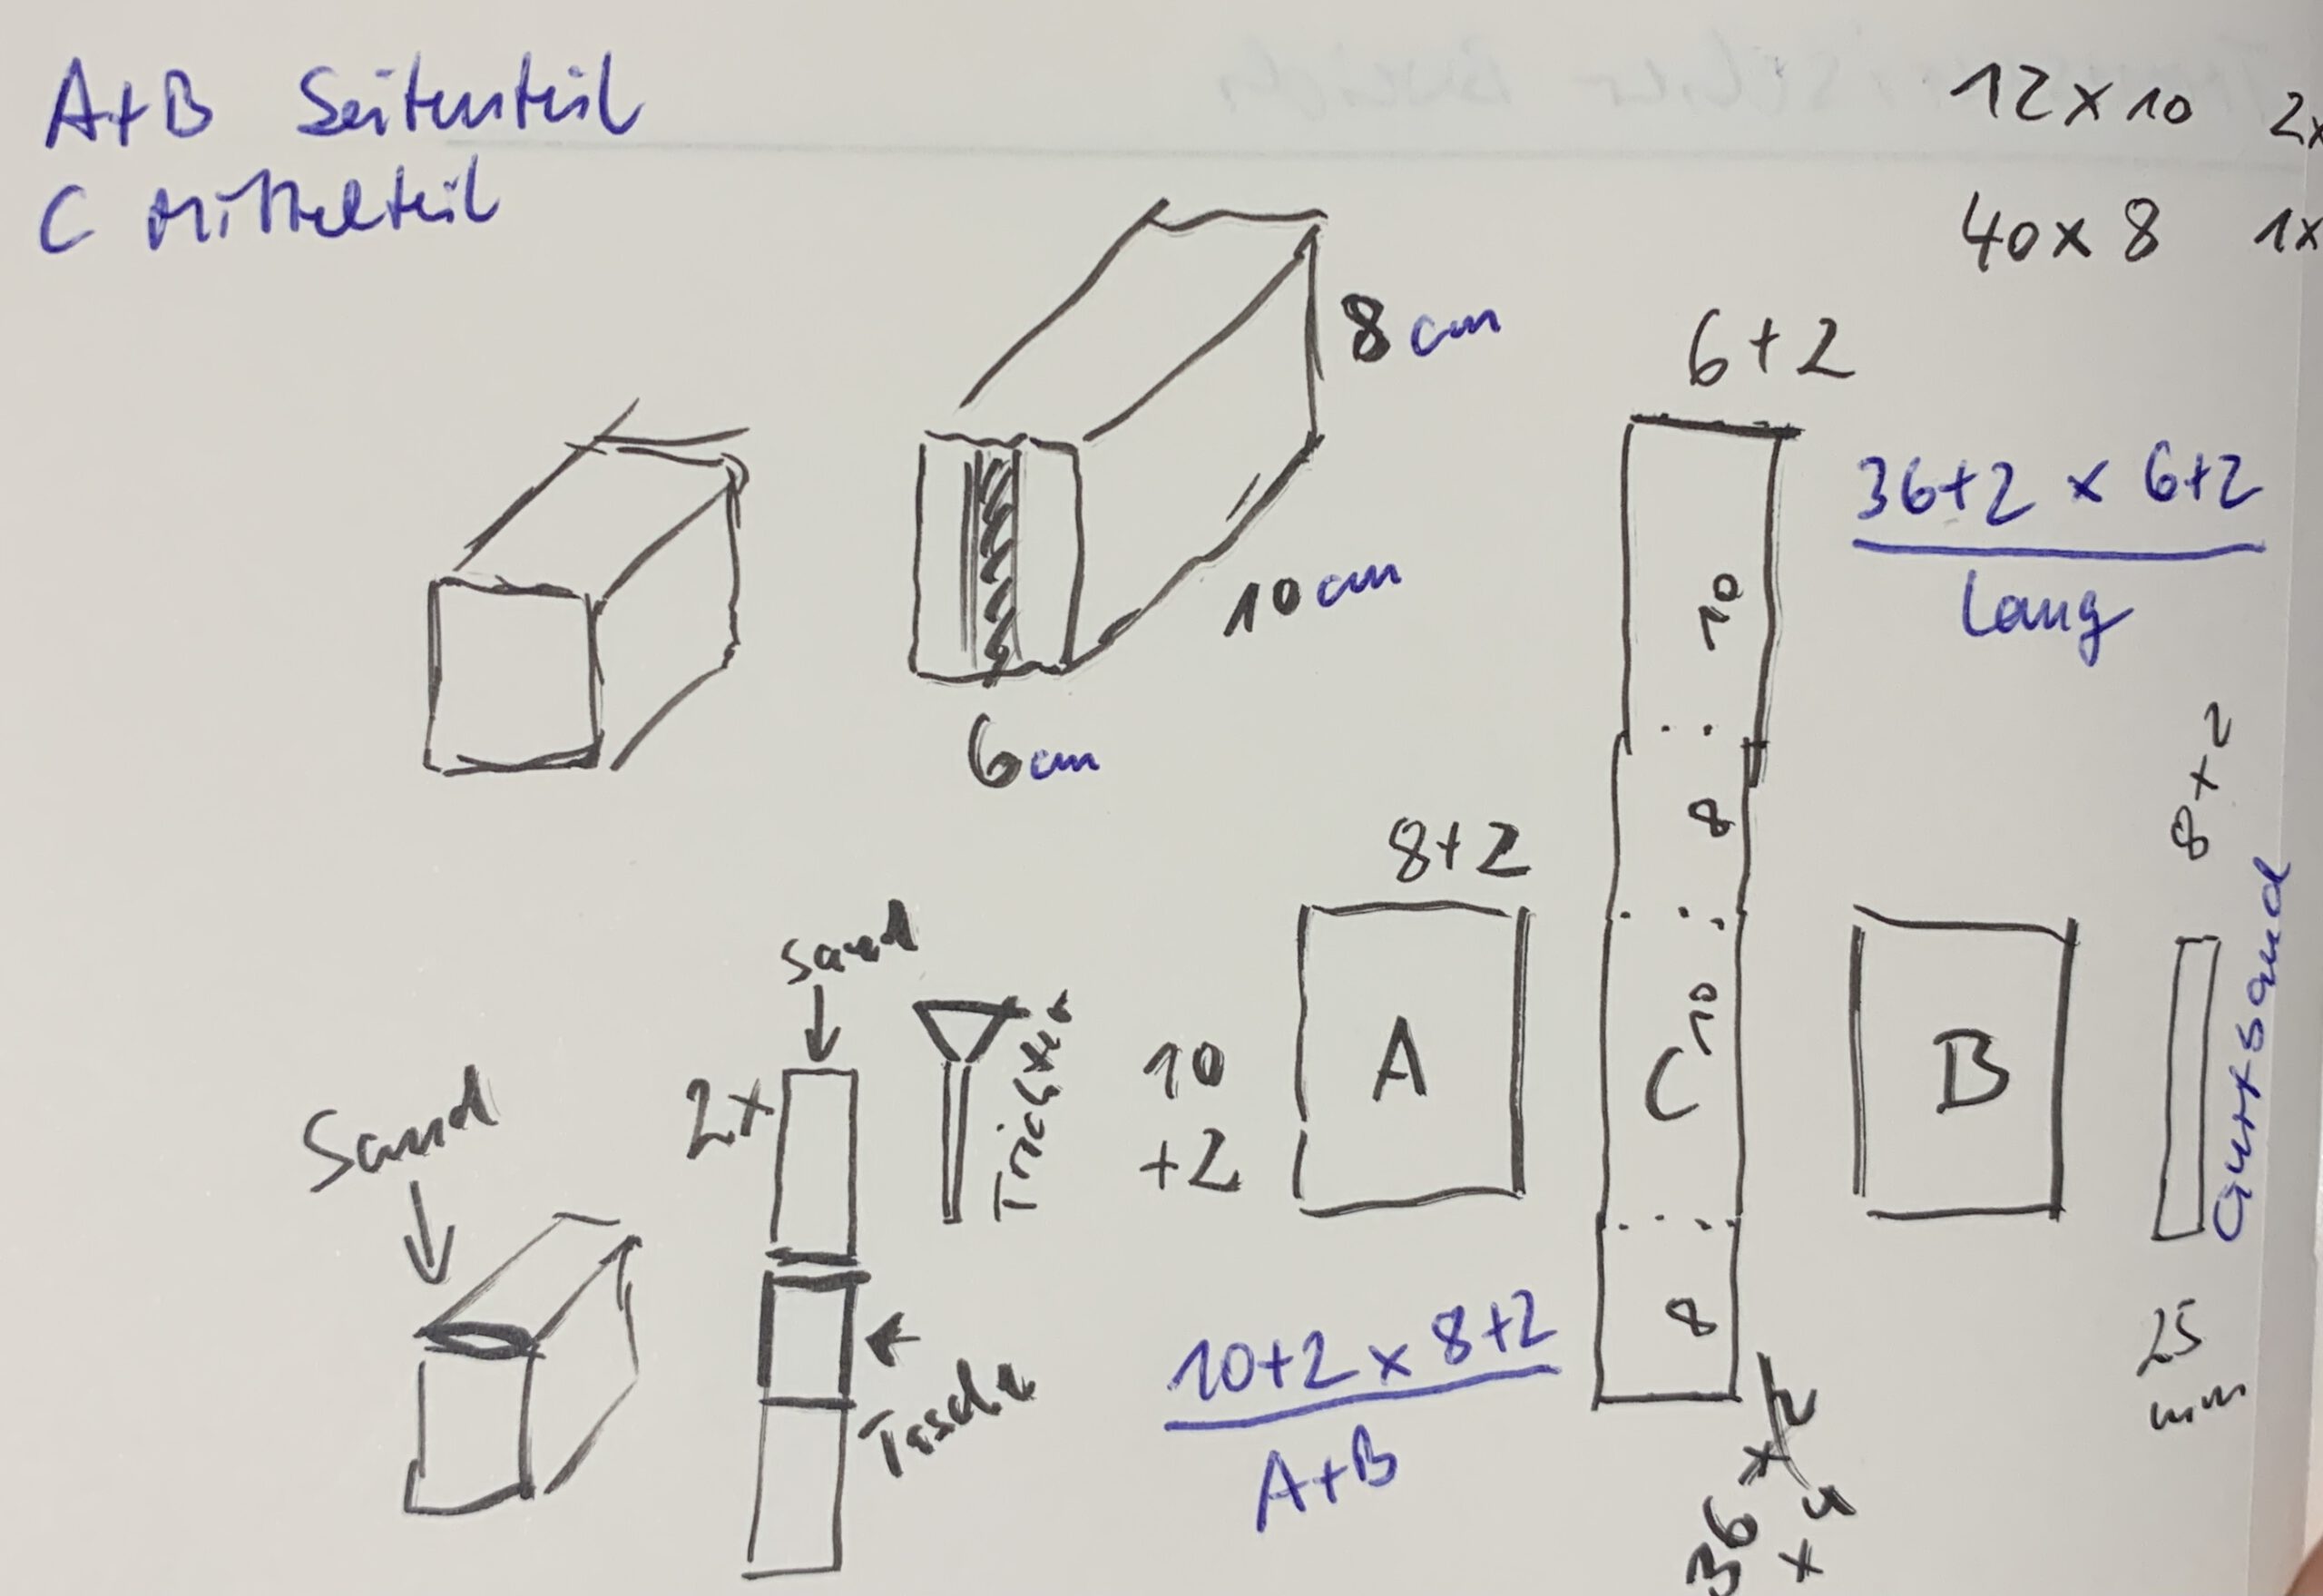 A+B Seitenteil
C Mittelteil
12 x 10 2x
40 x 8 1x
8 cm
10 cm
6 cm
6+2
36+2 x 6+2
Lang
10
8
10
C
8
8+2
10
+2
A
B
8+2
Gurtsand
25
mm
10+2 x 8+2
A+B
Sand
2x
Sand
Trichter
36
+ 4